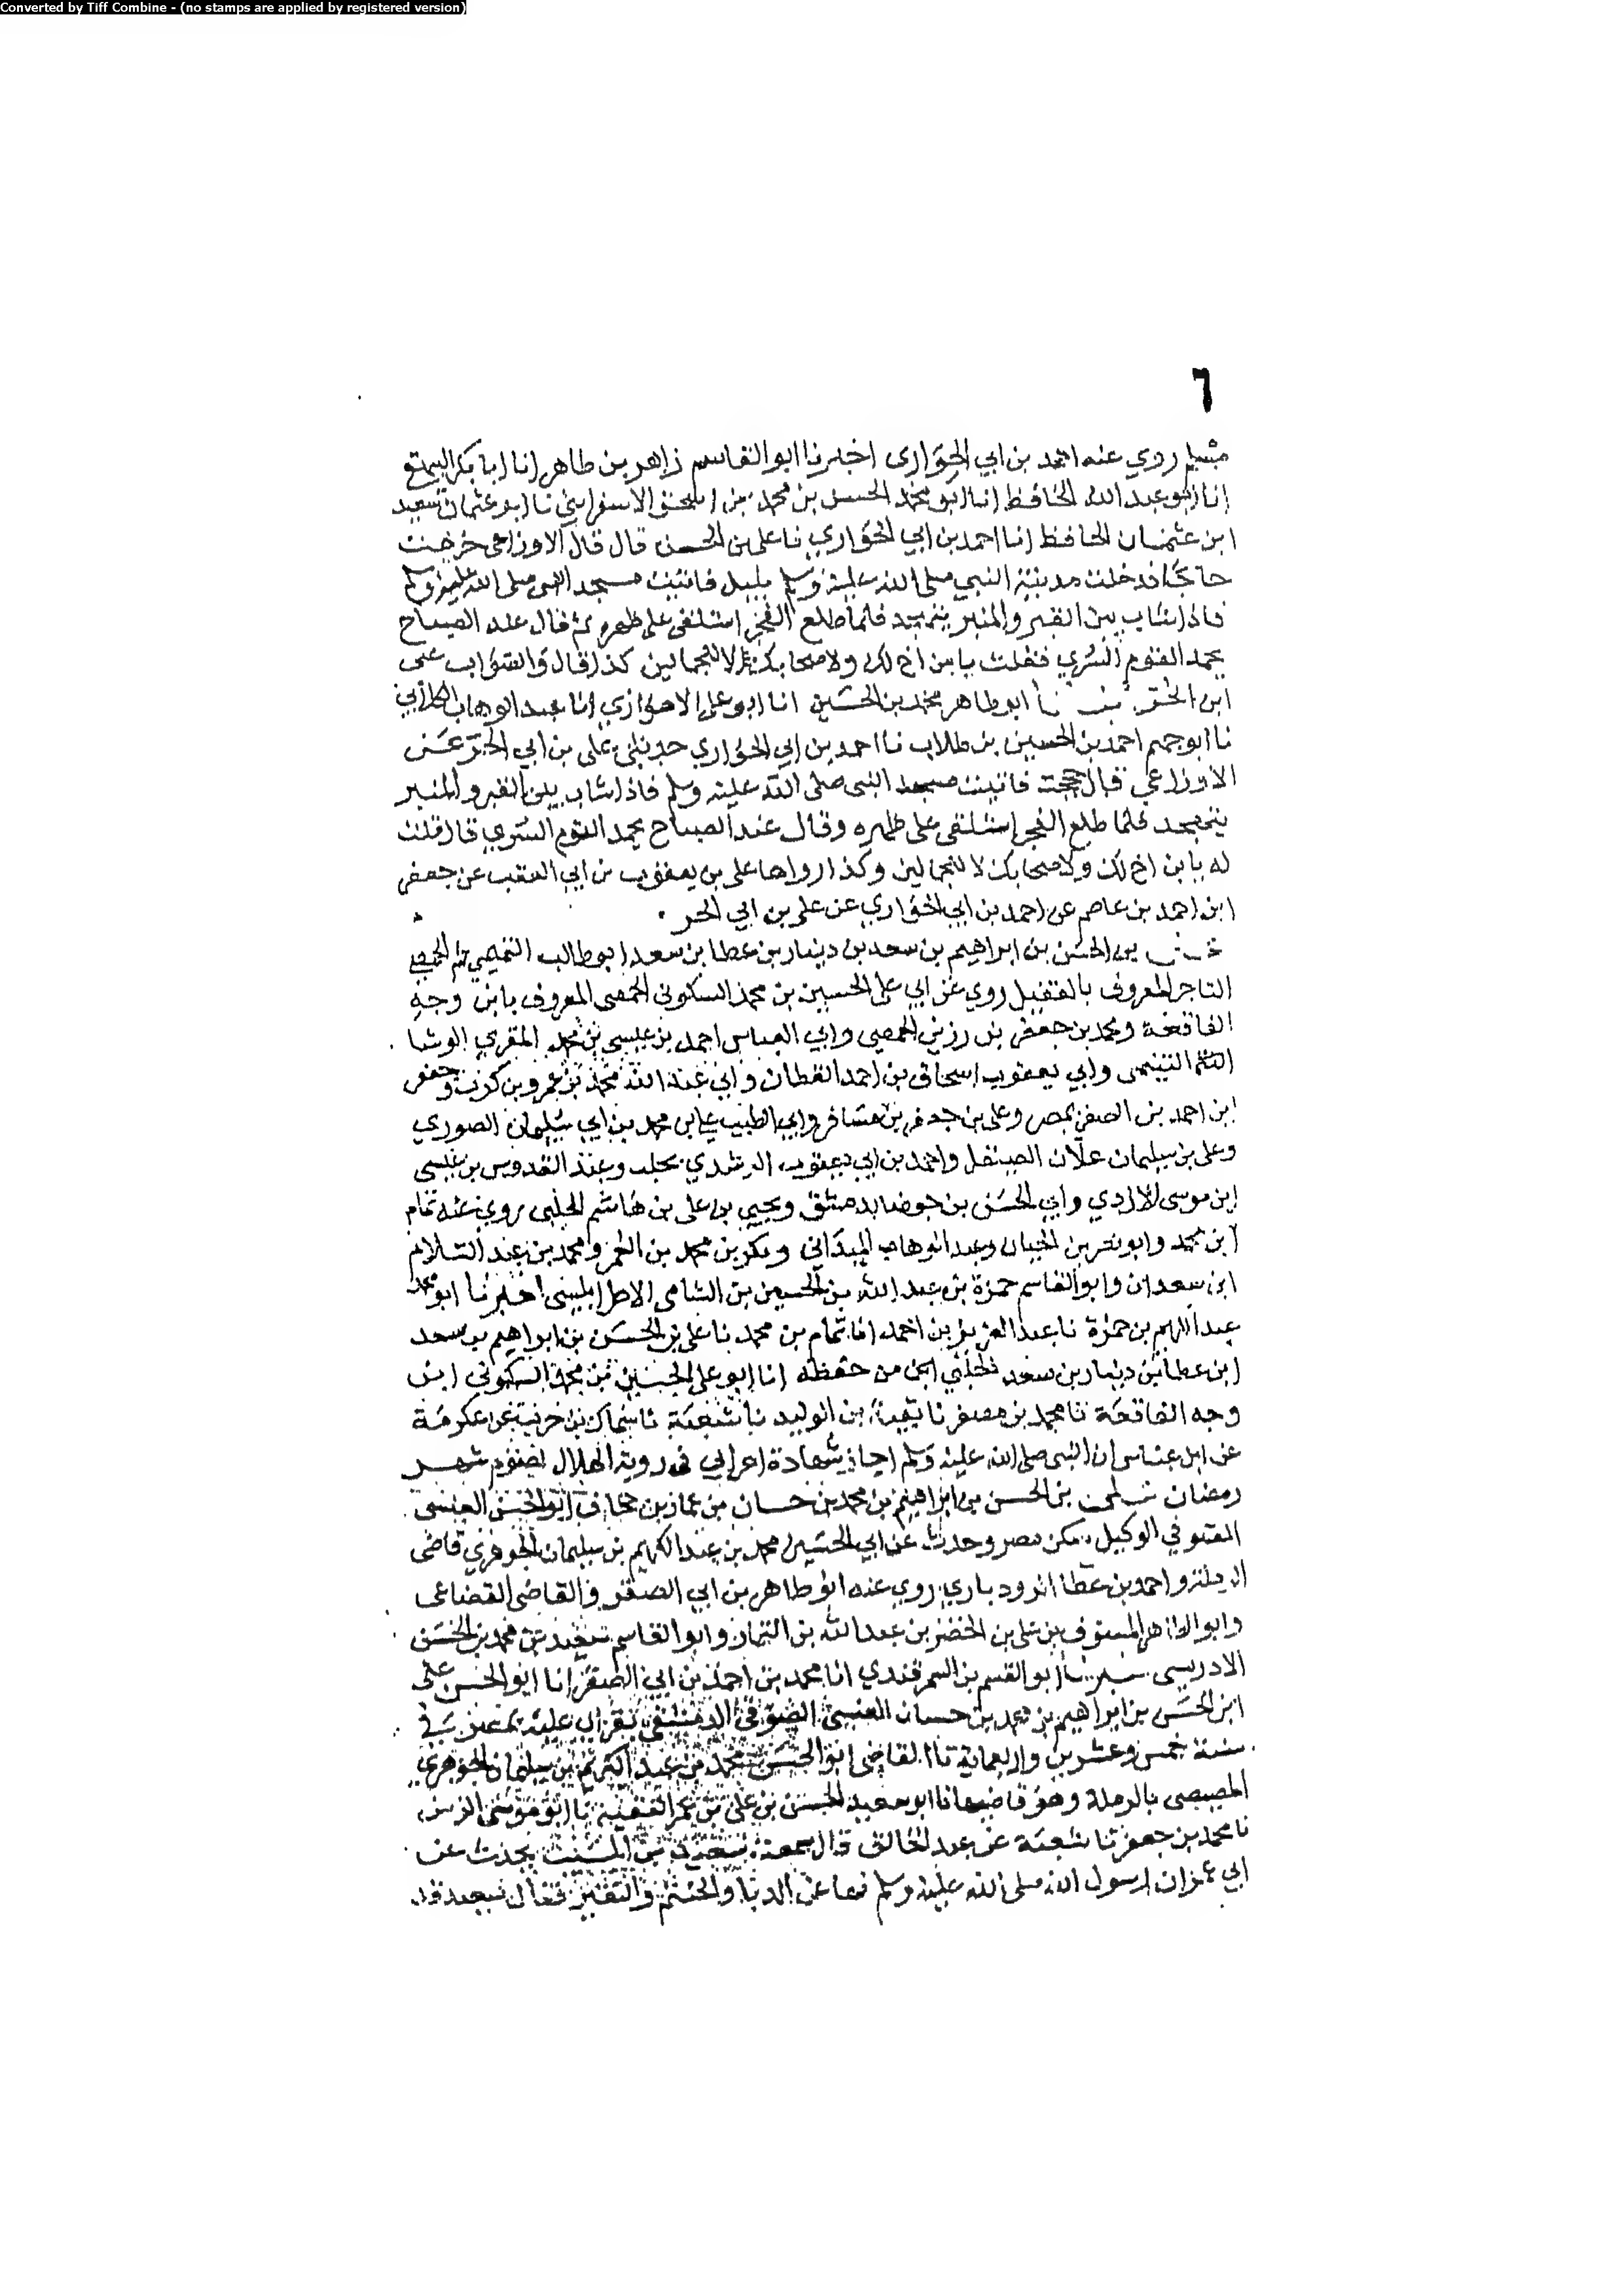 Converted by Tiff Combine - (no stamps are applied by registered version)
٦
روي عنه احمد بن ابي الحواري اخبرنا ابو القاسم زاهر بن طاهر انا ابا بكر البيهقي
انا ابو عبد الله الحافظ انا ابو محمد الحسن بن محمد بن اسحق الاسفرايني نا ابو عثمان سعيد
ابن عثمان الحافظ انا احمد بن ابي الحواري نا على بن الحسن قال قال الاوزاعى خرجت
حاجا فدخلت مدينة النبي صلى الله عليه وسلم بليل فاتيت مسجد النبى صلى الله عليه وسلم
فاذا شاب بين القبر والمنبر يتهجد فلما طلع الفجر استلقى على ظهره ثم قال عند الصباح
يحمد القوم السري فقلت يا بن اخ لك ولاصحابك لا للجمالين كذا قال والصواب على
ابن الحر ابو طاهر محمد بن الحسين انا ابو على الاهوازي انا عبد الوهاب الكلابي
نا ابو جهم احمد بن الحسين بن طلاب نا احمد بن ابي الحواري حدثنى على بن ابي الحر عن
الاوزاعي قال حججت فاتيت مسجد النبى صلى الله عليه وسلم فاذا شاب بين القبر والمنبر
يتهجد فلما طلع الفجر استلقى على ظهره وقال عند الصباح يحمد القوم السري قال قلت
له يا بن اخ لك ولاصحابك لا للجمالين وكذا رواها على بن يعقوب بن ابي العقب عن جعفر
ابن احمد بن عاصم عن احمد بن ابي الحواري عن على بن ابي الحر
بن الحسن بن ابراهيم بن سعد بن دينار بن عطا بن سعد ابو طالب
التاجر المعروف روي عن ابي على الحسين بن محمد السكوني الحمصى المعروف بابن وجه
الفاقعة ومحمد بن جعفر بن رزين الحمصي وابي العباس احمد بن عيسى بن محمد المقري الوشا
التنيسى وابي يعقوب اسحاق بن احمد القطان وابي عبد الله محمد بن عمرو بن وجعفر
ابن احمد بن الصقر بمصر وعلى بن جعفر بن مسافر وابي الطيب على بن محمد بن ابي سليمان الصوري
وعلى بن سليمان علان الصيقل واحمد بن ابي يعقوب بحلب وعبد القدوس بن عيسى
ابن موسى وابي الحسن بن جوصا بدمشق ويحيي بن على بن هاشم الحلبى روي عنه تمام
ابن محمد وابو نصر بن الجبان وعبد الوهاب الميداني وبكر بن محمد بن ومحمد بن عبد السلام
ابن سعدان وابو القاسم حمزة بن عبد الله بن الحسين بن الشامى الاطرابلسى اخبرنا ابو محمد
عبد الكريم بن حمزة نا عبد العزيز بن احمد انا تمام بن محمد نا على بن الحسن بن ابراهيم بن سعد
ابن عطا بن دينار بن سعد من حفظه انا ابو على الحسين بن محمد السكوني ابن
وجه الفاقعة نا محمد بن مصفر نا بقية بن الوليد نا شعبة نا سماك بن حرب عن عكرمة
عن ابن عباس ان النبى صلى الله عليه وسلم اجاز شهادة اعرابي في روية الهلال لصوم شهر
رمضان على بن الحسن بن ابراهيم بن محمد بن حسان بن عمار بن ابو الحسن العبسى
الوكيل سكن مصر وحدث عن ابي الحسين محمد بن عبد الكريم بن سليمان الجوهري قاضى
الرملة واحمد بن عطا الروذباري روي عنه ابو طاهر بن ابي الصقر والقاضى القضاعى
وابو الطاهر بن على بن الخضر بن عبد الله وابو القاسم سعيد بن محمد بن الحسن
الادريسى ابو القسم بن السمرقندي انا محمد بن احمد بن ابي الصقر انا ابو الحسن على
ابن الحسن بن ابراهيم بن محمد بن حسان العبسي الصوفي الدمشقي بقراتي عليه بمصر في
سنة خمس وعشرين واربعماية نا القاضى ابو الحسين محمد بن عبد الكريم بن سليمان الجوهري
المصيصى بالرملة وهو قاضيها نا ابو سعيد الحسن بن على بن عمر الفقيه نا ابو موسى الزمن
نا محمد بن جعفر نا شعبة عن عبد الخالق قال سمعت سعيد بن المسيب يحدث عن
ابي عمر ان رسول الله صلى الله عليه وسلم نها عن الدبا والحنتم والنقير فقال سعيد